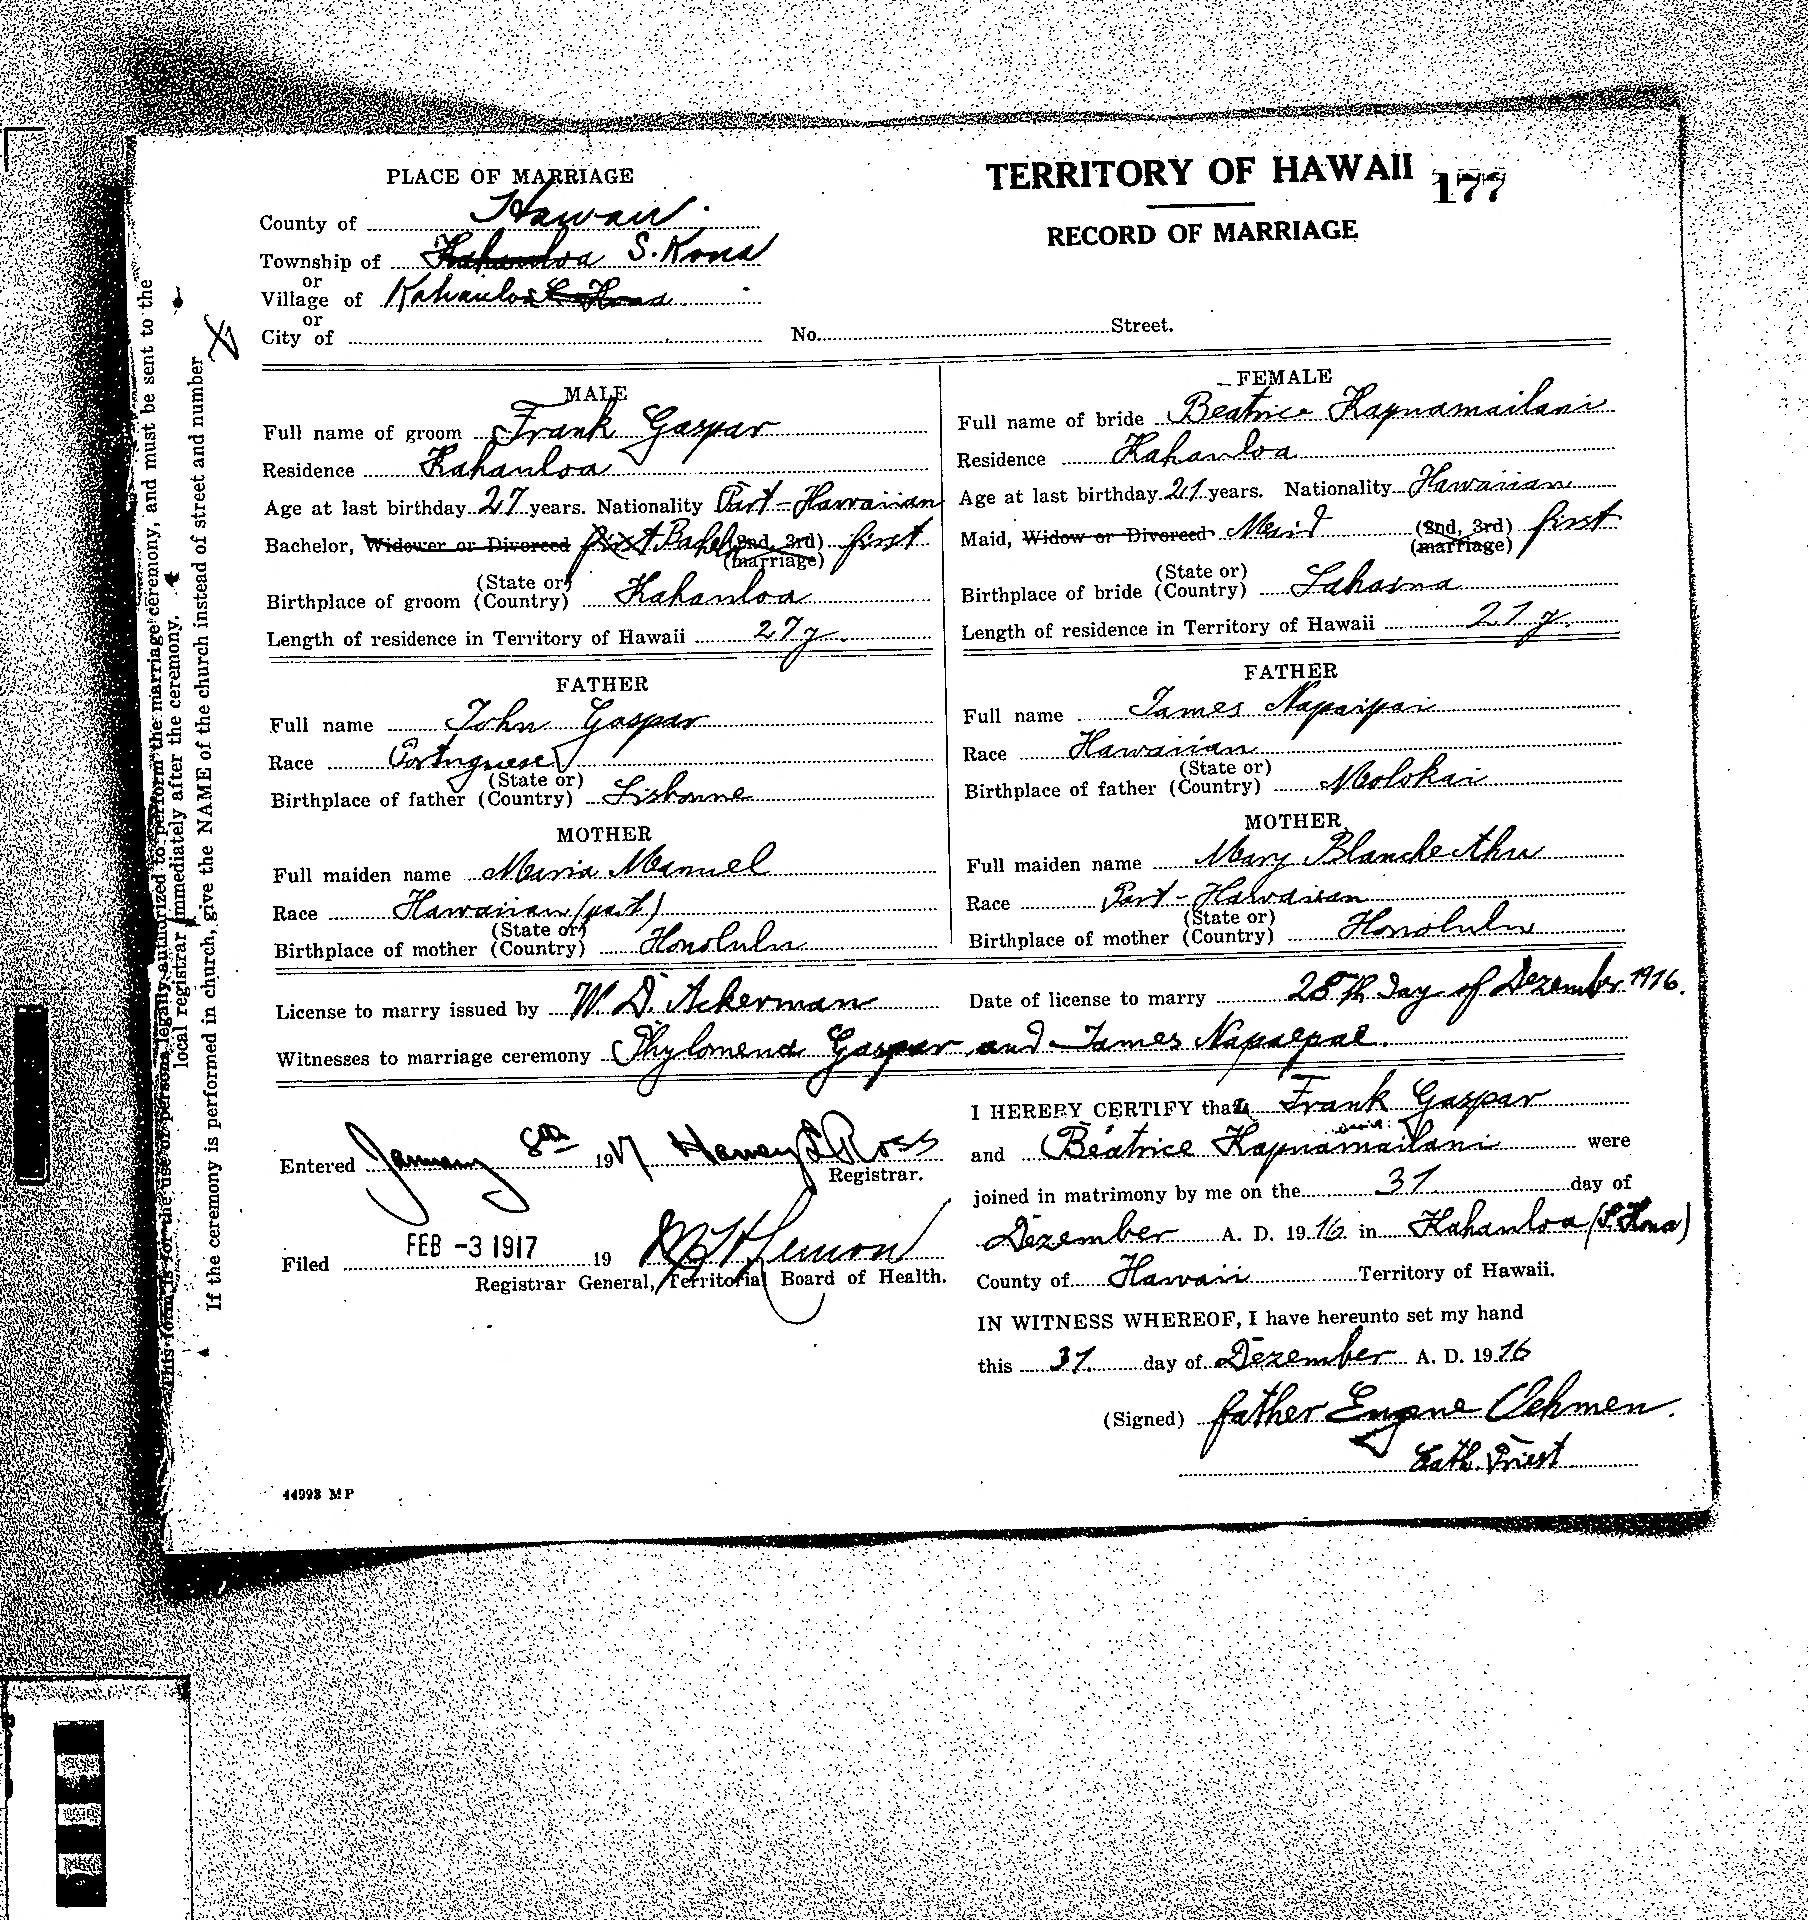 PLACE OF MARRIAGE
TERRITORY OF HAWAII 177
RECORD OF MARRIAGE
County of Hawaii.
Township of Kahauloa S. Kona
or
Village of Kahauloa S. Kona
or
City of No. Street.
MALE
Full name of groom Frank Gaspar
Residence Kahauloa
Age at last birthday 27 years. Nationality Part-Hawaiian
Bachelor, Widower or Divorced first Bachel (2nd, 3rd) first
(marriage)
(State or)
Birthplace of groom (Country) Kahauloa
Length of residence in Territory of Hawaii 27 y.
FATHER
Full name John Gaspar
Race Portuguese
(State or)
Birthplace of father (Country) Lisbonne
MOTHER
Full maiden name Maria Manuel
Race Hawaiian (part)
(State or)
Birthplace of mother (Country) Honolulu
FEMALE
Full name of bride Beatrice Kapuamailani
Residence Kahauloa
Age at last birthday 21 years. Nationality Hawaiian
Maid, Widow or Divorced Maid (2nd, 3rd) first
(marriage)
(State or)
Birthplace of bride (Country) Lahaina
Length of residence in Territory of Hawaii 21 y.
FATHER
Full name James Napaipai
Race Hawaiian
(State or)
Birthplace of father (Country) Molokai
MOTHER
Full maiden name Mary Blanche Ahu
Race Part-Hawaiian
(State or)
Birthplace of mother (Country) Honolulu
License to marry issued by W. D. Ackerman Date of license to marry 28th day of Dezember 1916.
Witnesses to marriage ceremony Phylomena Gaspar and James Napaepae.
Entered January 8th 1917 Henry L Ross
Registrar.
Filed FEB -3 1917 19
Registrar General, Territorial Board of Health.
I HEREBY CERTIFY that Frank Gaspar
and Beatrice Kapuamailani were
joined in matrimony by me on the 31 day of
Dezember A. D. 1916 in Kahauloa (S. Kona)
County of Hawaii Territory of Hawaii.
IN WITNESS WHEREOF, I have hereunto set my hand
this 31. day of Dezember A. D. 1916
(Signed) father Eugene Oehmen.
Cath. Priest
44993 MP
This form is for the use of persons legally authorized to perform the marriage ceremony, and must be sent to the
local registrar immediately after the ceremony.
If the ceremony is performed in church, give the NAME of the church instead of street and number